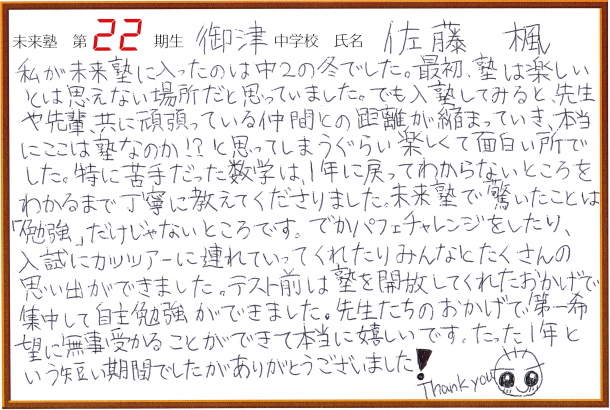 未来塾 第22期生 御津中学校 氏名 佐藤 楓
私が未来塾に入ったのは中2の冬でした。最初、塾は楽しい
とは思えない場所だと思っていました。でも入塾してみると、先生
や先輩、共に頑張っている仲間との距離が縮まっていき、本当
にここは塾なのか!?と思ってしまうぐらい楽しくて面白い所で
した。特に苦手だった数学は1年に戻ってわからないところを
わかるまで丁寧に教えてくださりました。未来塾で驚いたことは
「勉強」だけじゃないところです。でかパフェチャレンジをしたり、
入試にカツツアーに連れていってくれたりみんなとたくさんの
思い出ができました。テスト前は塾を開放してくれたおかげで
集中して自主勉強ができました。先生たちのおかげで第一希
望に無事受かることができて本当に嬉しいです。たった1年と
いう短い期間でしたがありがとうございました!
Thank you